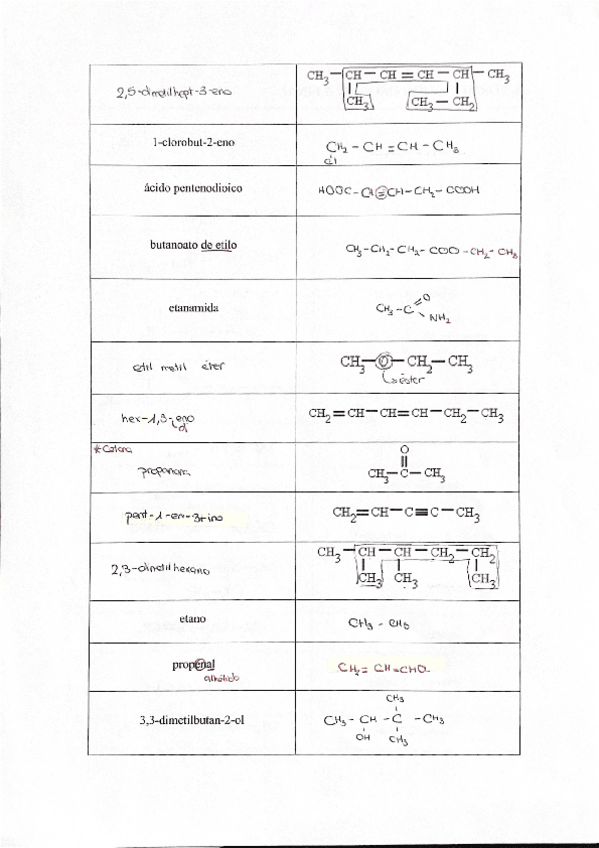 2,5-dimetilhept-3-eno
CH3 — CH — CH = CH — CH — CH3
CH3 CH3 — CH2
1-clorobut-2-eno
CH2 - CH = CH - CH3
Cl
ácido pentenodioico
HOOC - CH = CH - CH2 - COOH
butanoato de etilo
CH3 - CH2 - CH2 - COO - CH2 - CH3
etanamida
CH3 - C
O
NH2
etil metil éter
CH3 — O — CH2 — CH3
→ ester
hex-1,3-eno
di
CH2 = CH — CH = CH — CH2 — CH3
*Cetona
propanona
O
CH3 — C — CH3
pent-1-en-3-ino
CH2 = CH — C ≡ C — CH3
2,3-dimetilhexano
CH3 — CH — CH — CH2 — CH2
CH3 CH3 CH3
etano
CH3 - CH3
propenal
aldehído
CH2 = CH - CHO
3,3-dimetilbutan-2-ol
CH3
CH3 - CH - C - CH3
OH CH3